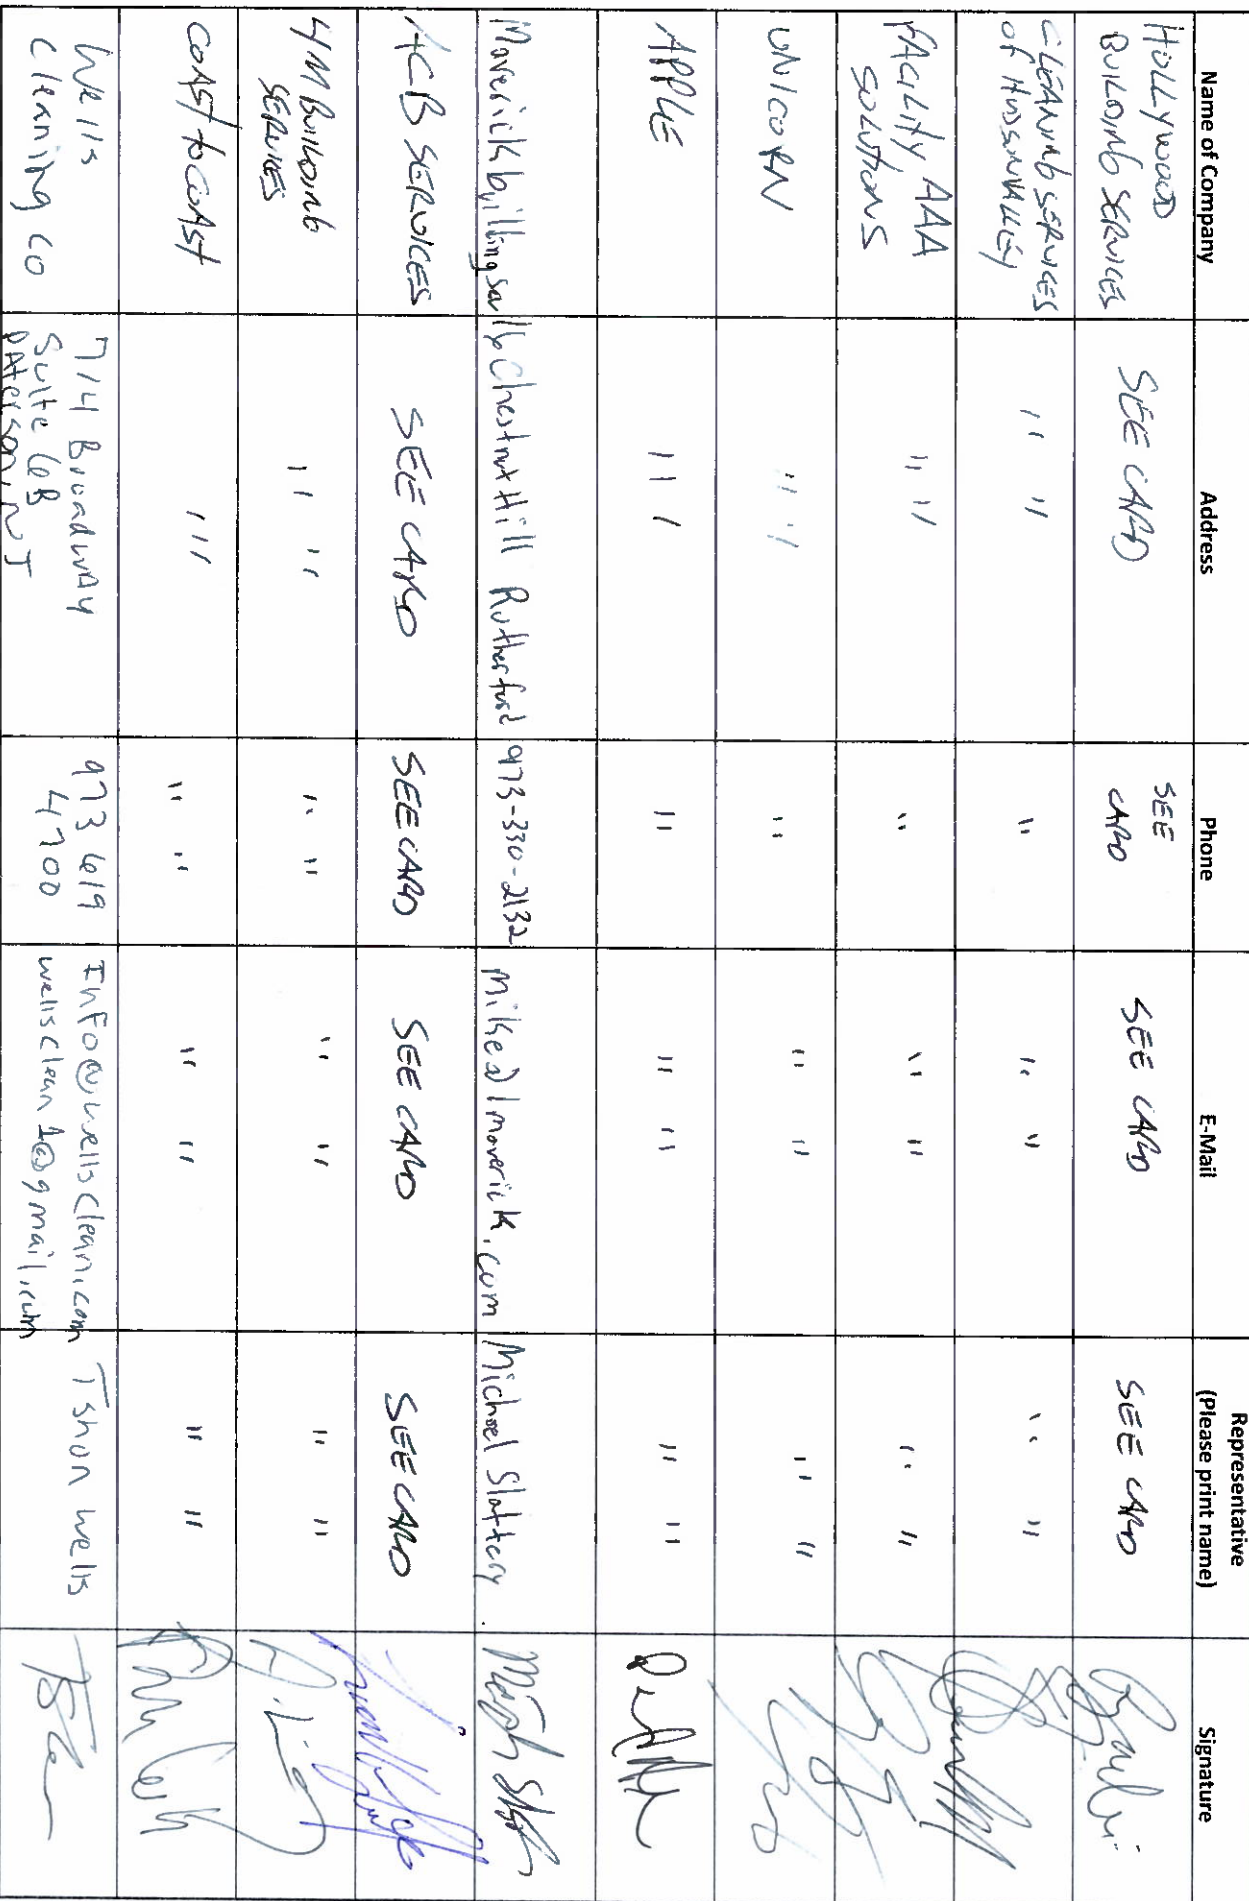 Name of Company Address Phone E-Mail Representative (Please print name) Signature
HOLLYWOOD
BUILDING SERVICES
SEE CARD
SEE
CARD
SEE CARD
SEE CARD
CLEANING SERVICES
of
" "
"
" "
" "
FACILITY, AAA
SOLUTIONS
" "
"
" "
" "
UNICORN
" "
"
" "
" "
APPLE
" "
"
" "
" "
Maverick building ser
16 Chestnut Hill Rutherford
973-330-2132
Michael Slattery
ACB SERVICES
SEE CARD
SEE CARD
SEE CARD
SEE CARD
4M BUILDING
SERVICES
" "
" "
" "
" "
COAST to COAST
" "
" "
" "
" "
Wells
Cleaning Co
714 Broadway
Suite 6B
Paterson, NJ
973 619
4700
Info@wellsclean.com
wellsclean1@gmail.com
Tshon Wells